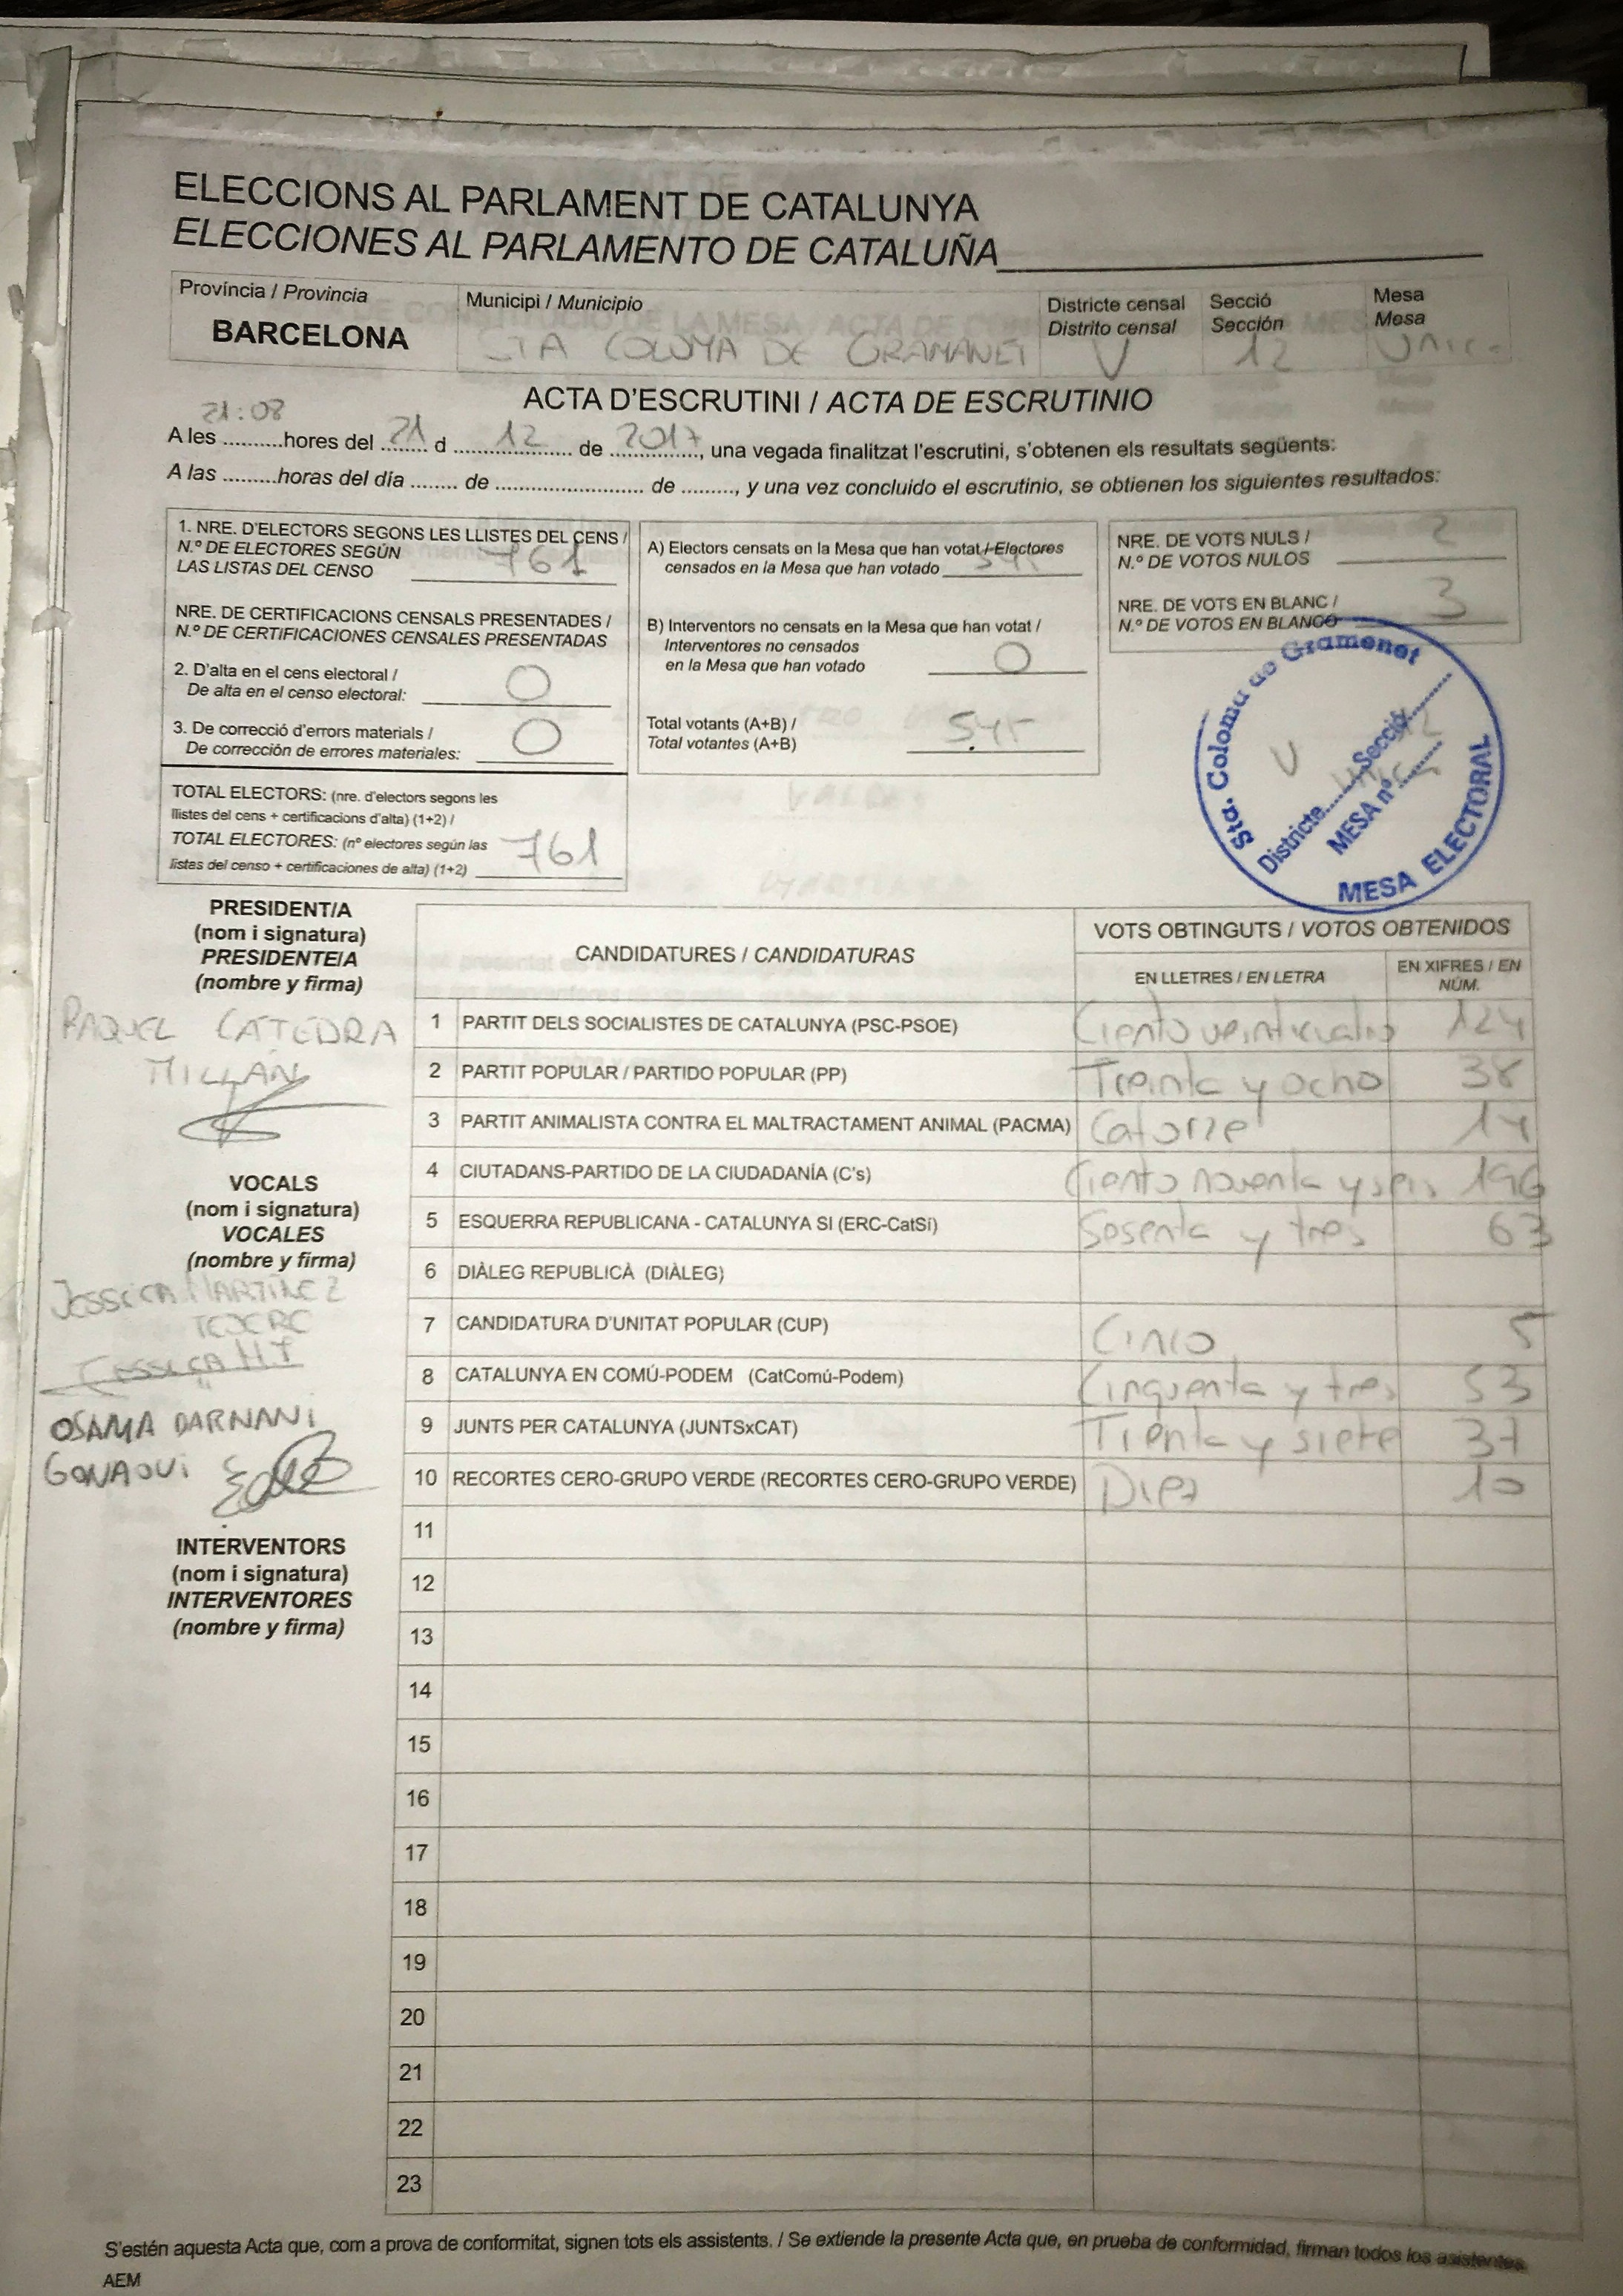 ELECCIONS AL PARLAMENT DE CATALUNYA
ELECCIONES AL PARLAMENTO DE CATALUÑA
Província / Provincia
BARCELONA
Municipi / Municipio
STA COLOMA DE GRAMANET
Districte censal
Distrito censal
V
Secció
Sección
12
Mesa
Mesa
Unica
ACTA D'ESCRUTINI / ACTA DE ESCRUTINIO
21:08
A les ..........hores del 21 d 12 de 2017, una vegada finalitzat l'escrutini, s'obtenen els resultats següents:
A las .........horas del día ........ de ........................ de ........., y una vez concluido el escrutinio, se obtienen los siguientes resultados:
1. NRE. D'ELECTORS SEGONS LES LLISTES DEL CENS /
N.º DE ELECTORES SEGÚN
LAS LISTAS DEL CENSO 761
NRE. DE CERTIFICACIONS CENSALS PRESENTADES /
N.º DE CERTIFICACIONES CENSALES PRESENTADAS
2. D'alta en el cens electoral /
De alta en el censo electoral: 0
3. De correcció d'errors materials /
De corrección de errores materiales: 0
TOTAL ELECTORS: (nre. d'electors segons les
llistes del cens + certificacions d'alta) (1+2) /
TOTAL ELECTORES: (nº electores según las
listas del censo + certificaciones de alta) (1+2) 761
A) Electors censats en la Mesa que han votat / Electores
censados en la Mesa que han votado 545
B) Interventors no censats en la Mesa que han votat /
Interventores no censados
en la Mesa que han votado 0
Total votants (A+B) /
Total votantes (A+B) 545
NRE. DE VOTS NULS /
N.º DE VOTOS NULOS 2
NRE. DE VOTS EN BLANC /
N.º DE VOTOS EN BLANCO 3
Sta. Coloma de Gramenet
Districte V Secció 12
MESA nº
MESA ELECTORAL
PRESIDENT/A
(nom i signatura)
PRESIDENTE/A
(nombre y firma)
RAQUEL CATEDRA
MILLÁN
VOCALS
(nom i signatura)
VOCALES
(nombre y firma)
JESSICA MARTINEZ
JESSICA MT
OSAMA DARNANI
GONAOUI
INTERVENTORS
(nom i signatura)
INTERVENTORES
(nombre y firma)
CANDIDATURES / CANDIDATURAS
VOTS OBTINGUTS / VOTOS OBTENIDOS
EN LLETRES / EN LETRA
EN XIFRES / EN
NÚM.
1 PARTIT DELS SOCIALISTES DE CATALUNYA (PSC-PSOE) Ciento veinticuatro 124
2 PARTIT POPULAR / PARTIDO POPULAR (PP) Treinta y ocho 38
3 PARTIT ANIMALISTA CONTRA EL MALTRACTAMENT ANIMAL (PACMA) Catorze 14
4 CIUTADANS-PARTIDO DE LA CIUDADANÍA (C's) Ciento noventa y seis 196
5 ESQUERRA REPUBLICANA - CATALUNYA SI (ERC-CatSí) Sesenta y tres 63
6 DIÀLEG REPUBLICÀ (DIÀLEG)
7 CANDIDATURA D'UNITAT POPULAR (CUP) Cinco 5
8 CATALUNYA EN COMÚ-PODEM (CatComú-Podem) Cinquenta y tres 53
9 JUNTS PER CATALUNYA (JUNTSxCAT) Trienta y siete 37
10 RECORTES CERO-GRUPO VERDE (RECORTES CERO-GRUPO VERDE) Diez 10
11
12
13
14
15
16
17
18
19
20
21
22
23
S'estén aquesta Acta que, com a prova de conformitat, signen tots els assistents. / Se extiende la presente Acta que, en prueba de conformidad, firman todos los asistentes.
AEM